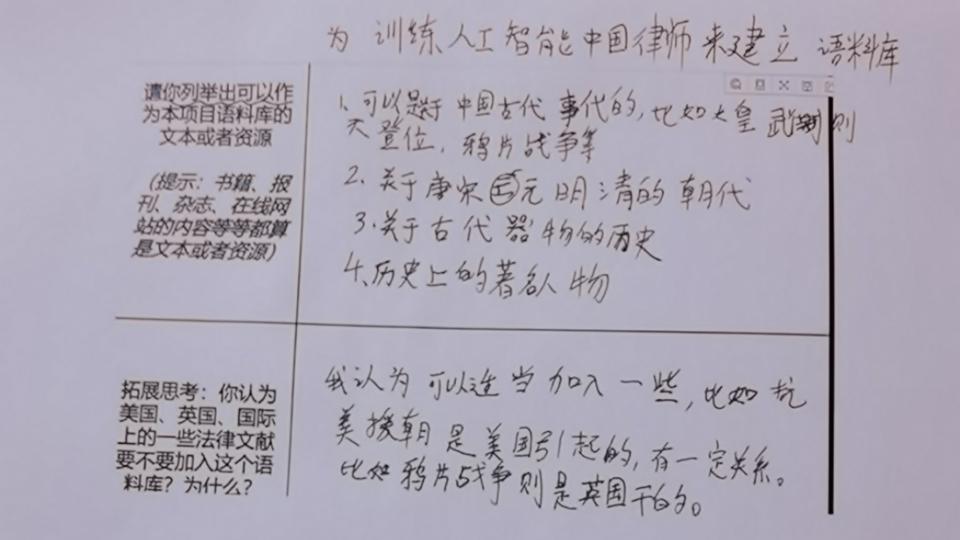 为训练人工智能中国律师来建立语料库
请你列举出可以作
为本项目语料库的
文本或者资源
(提示:书籍、报
刊、杂志、在线网
站的内容等等都算
是文本或者资源)
1、可以是关于中国古代事代的,比如女皇武则
天登位,鸦片战争等
2、关于唐宋元明清的朝代
3、关于古代器物的历史
4、历史上的著名人物
拓展思考:你认为
美国、英国、国际
上的一些法律文献
要不要加入这个语
料库?为什么?
我认为可以适当加入一些,比如抗
美援朝是美国引起的,有一定关系。
比如鸦片战争则是英国干的。